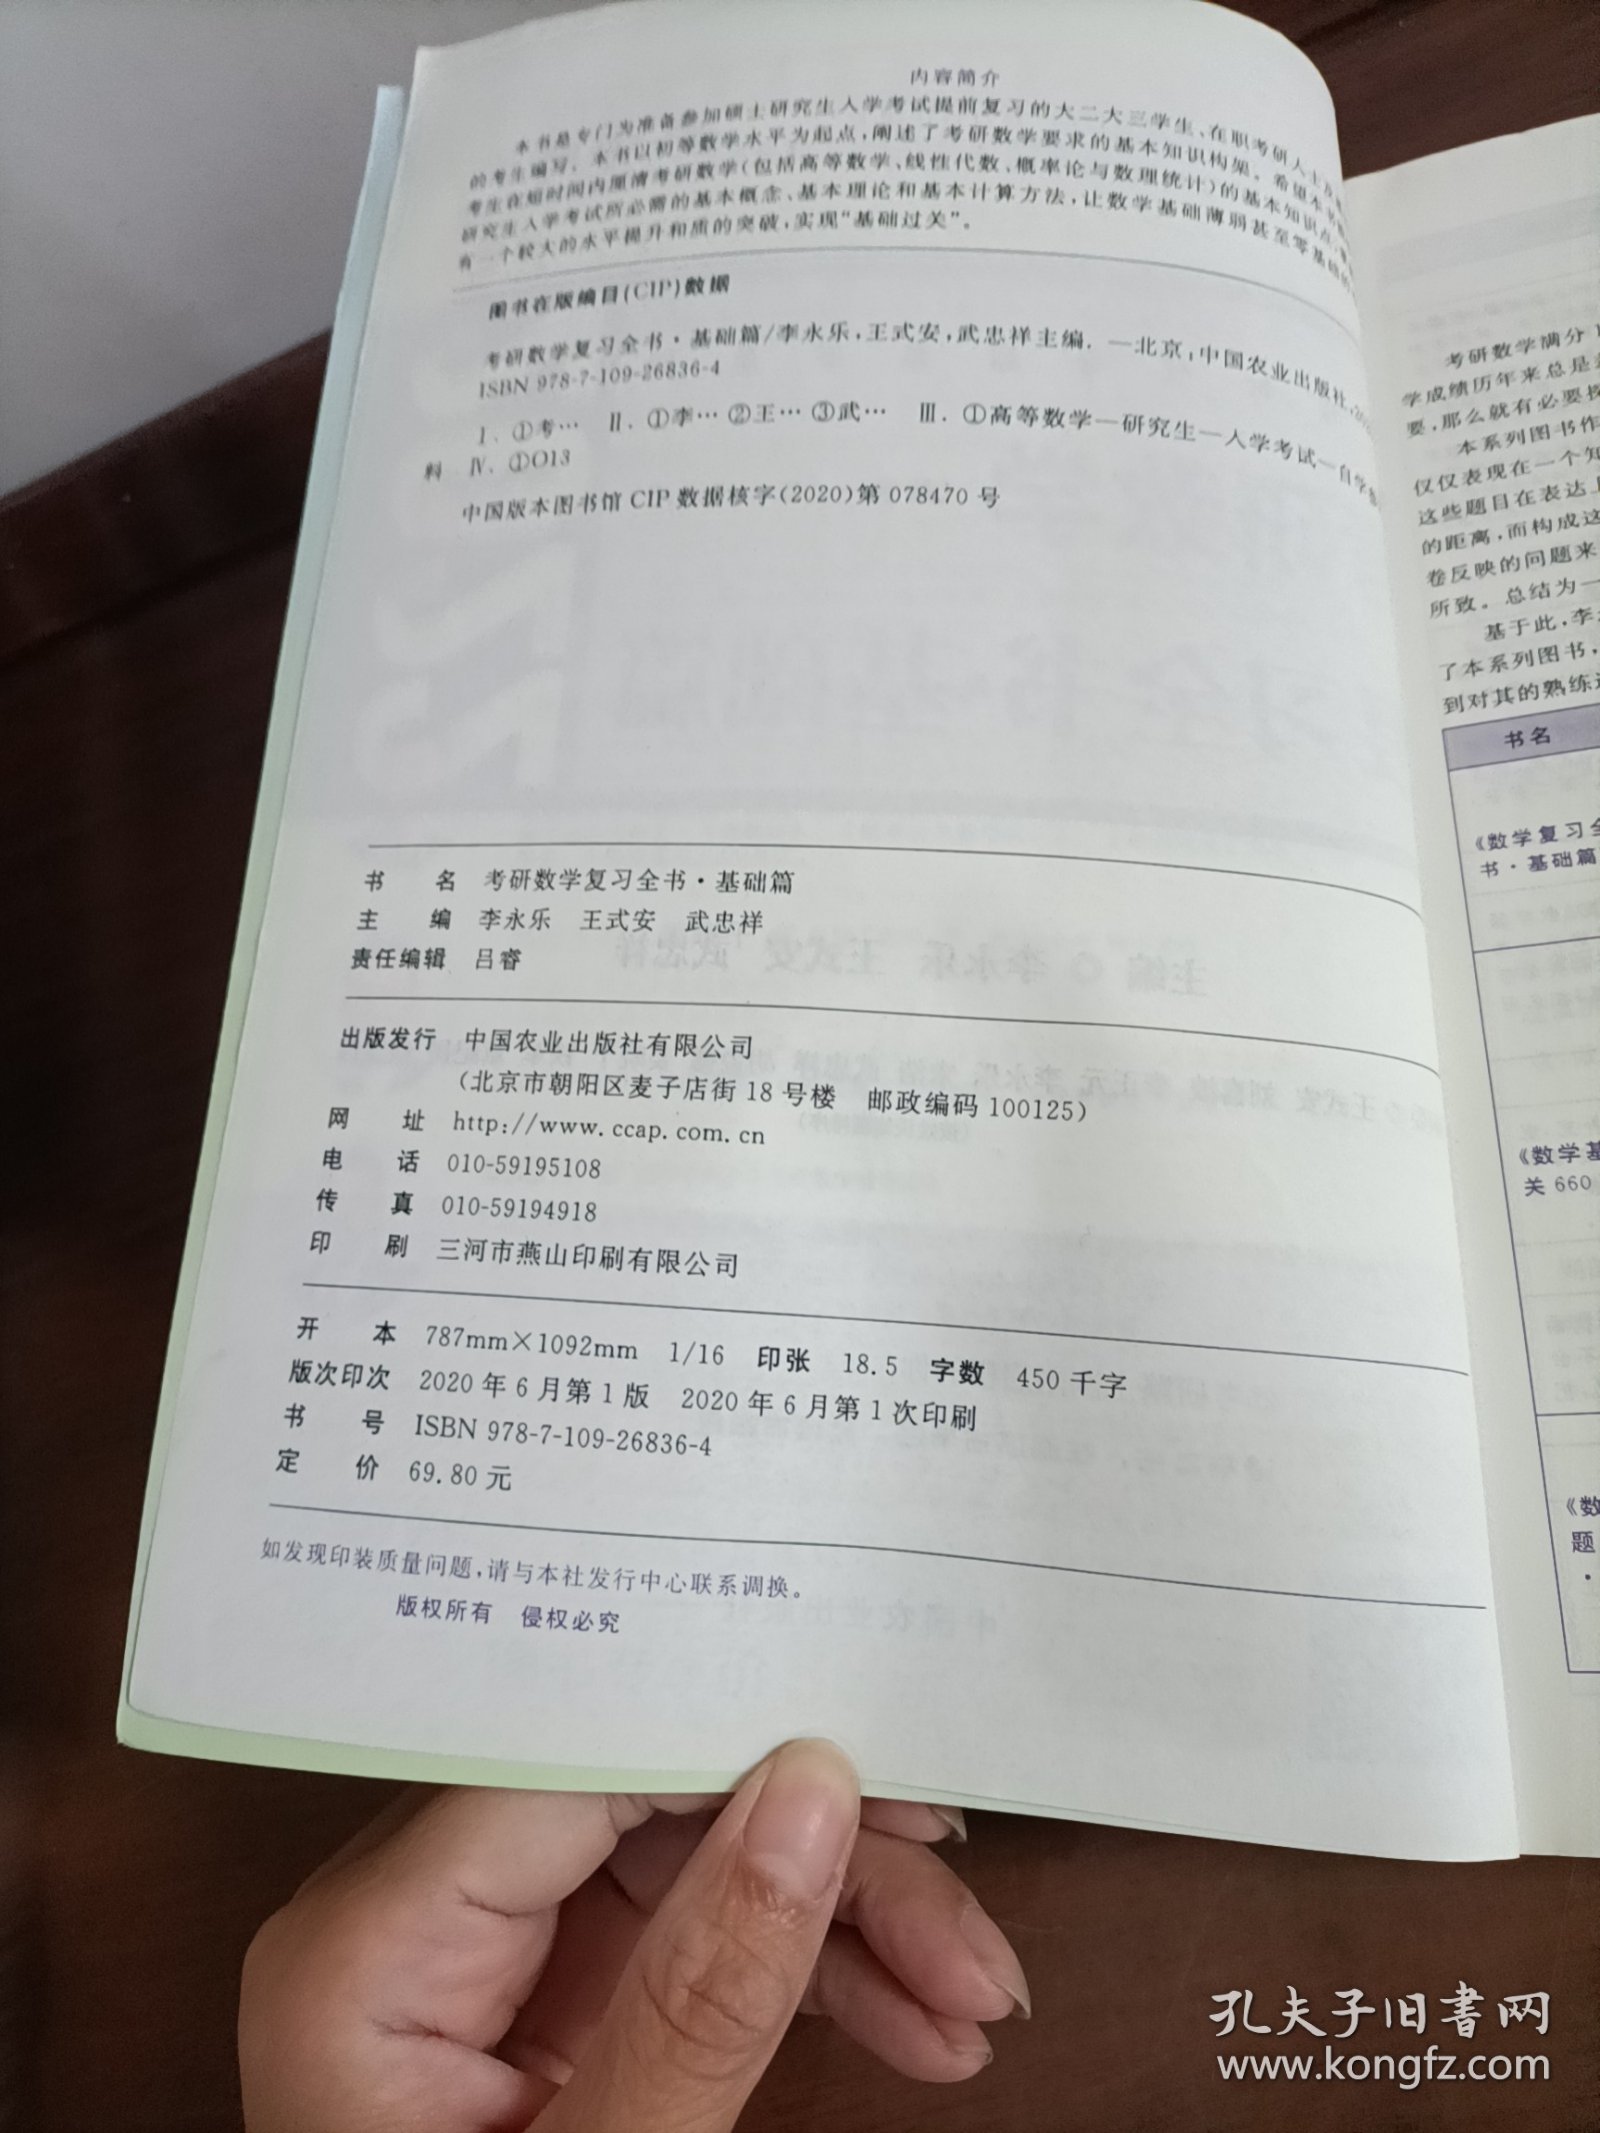 内容简介
本书是专门为准备参加硕士研究生入学考试提前复习的大二大三学生、在职考研人士及
的考生编写。本书以初等数学水平为起点,阐述了考研数学要求的基本知识构架。希望本书
考生在短时间内厘清考研数学(包括高等数学、线性代数、概率论与数理统计)的基本知识点,
研究生入学考试所必需的基本概念、基本理论和基本计算方法,让数学基础薄弱甚至零基础
有一个较大的水平提升和质的突破,实现“基础过关”。
图书在版编目(CIP)数据
考研数学复习全书·基础篇/李永乐,王式安,武忠祥主编. —北京:中国农业出版社,
ISBN 978-7-109-26836-4
Ⅰ. ①考… Ⅱ. ①李… ②王… ③武… Ⅲ. ①高等数学—研究生—入学考试—自学
料 Ⅳ. ①O13
中国版本图书馆 CIP 数据核字(2020)第 078470 号
书 名 考研数学复习全书·基础篇
主 编 李永乐 王式安 武忠祥
责任编辑 吕睿
出版发行 中国农业出版社有限公司
(北京市朝阳区麦子店街 18 号楼 邮政编码 100125)
网 址 http://www.ccap.com.cn
电 话 010-59195108
传 真 010-59194918
印 刷 三河市燕山印刷有限公司
开 本 787mm×1092mm 1/16 印张 18.5 字数 450 千字
版次印次 2020 年 6 月第 1 版 2020 年 6 月第 1 次印刷
书 号 ISBN 978-7-109-26836-4
定 价 69.80 元
如发现印装质量问题,请与本社发行中心联系调换。
版权所有 侵权必究
考研数学满分
学成绩历年来总是
要,那么就有必要
本系列图书作
仅仅表现在一个知
这些题目在表达上
的距离,而构成这
卷反映的问题来
所致。总结为一
基于此,李
了本系列图书,
到对其的熟练
书名
《数学复习全
书·基础篇
《数学基
关 660
《数
题
·
孔夫子旧书网
www.kongfz.com